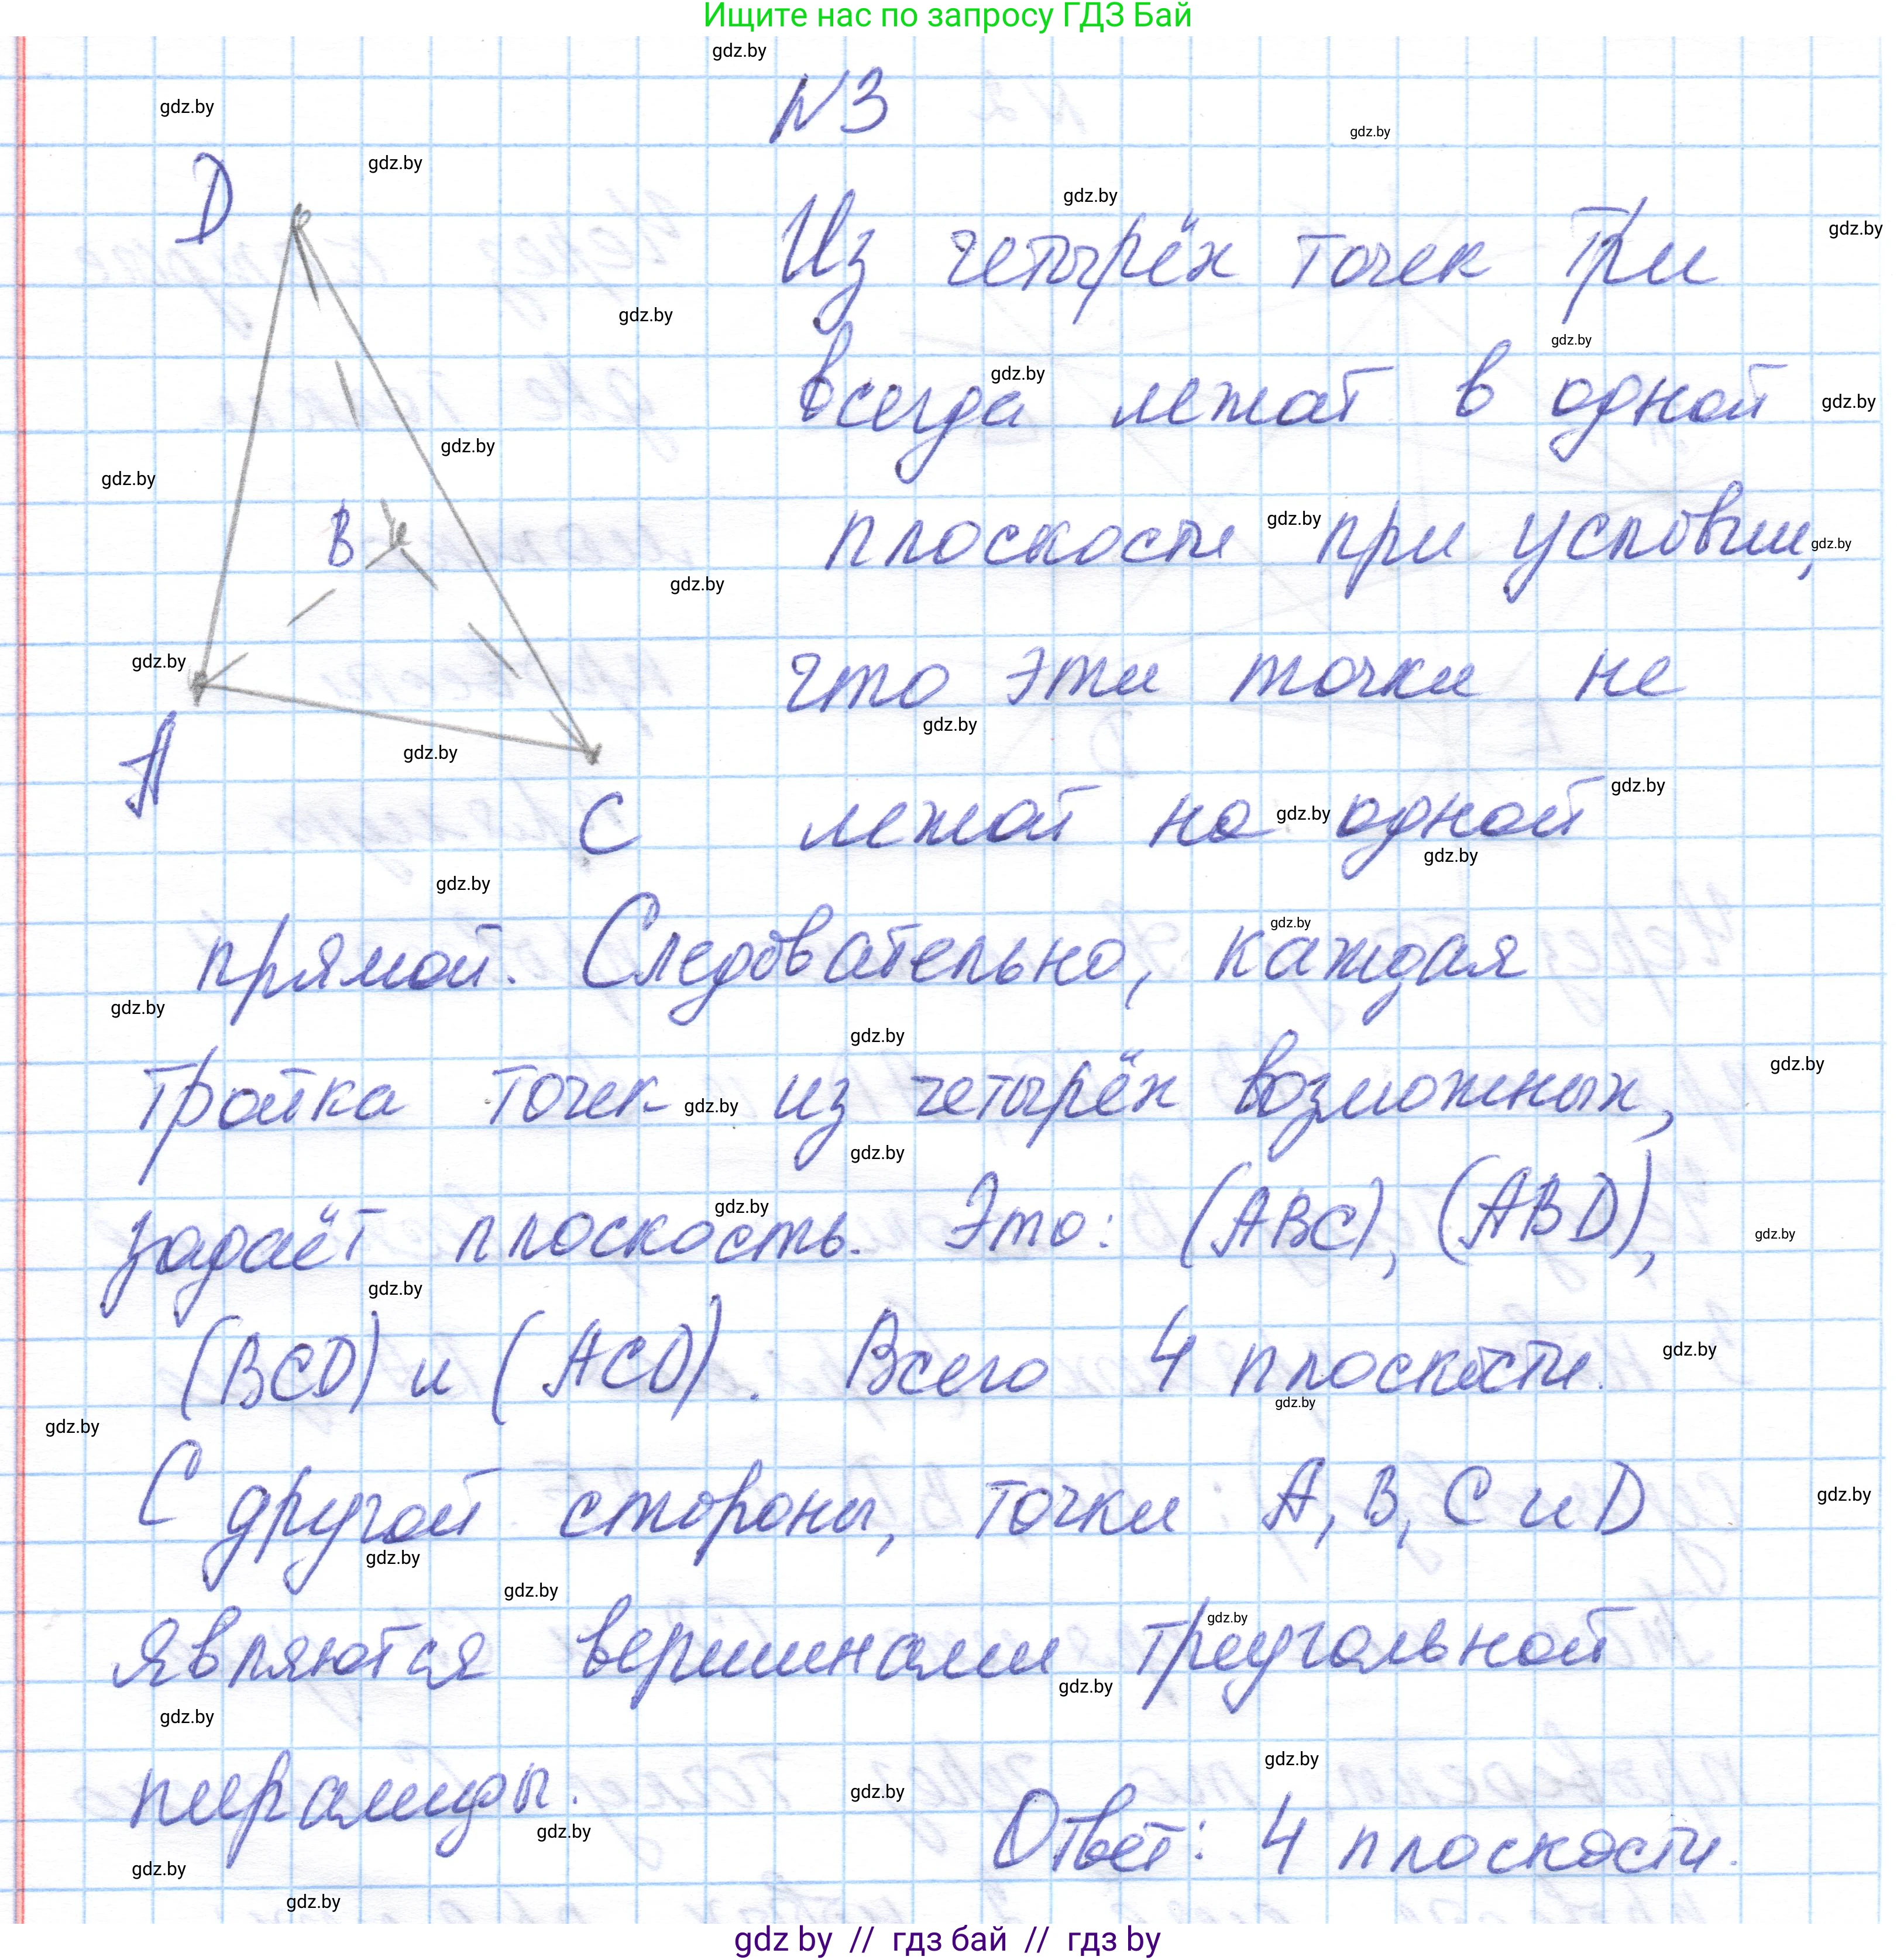 Ищите нас по запросу ГДЗ Бай
N3
D
Из четырёх точек три
всегда лежат в одной
B
плоскости при условии,
что эти точки не
A
C
лежат на одной
прямой. Следовательно, каждая
тройка точек из четырёх возможных,
задаёт плоскость. Это: (ABC), (ABD),
(BCD) и (ACD). Всего 4 плоскости.
С другой стороны, точки: A, B, C и D
являются вершинами треугольной
пирамиды.
Ответ: 4 плоскости.
gdz by // гдз бай // гдз by
gdz.by